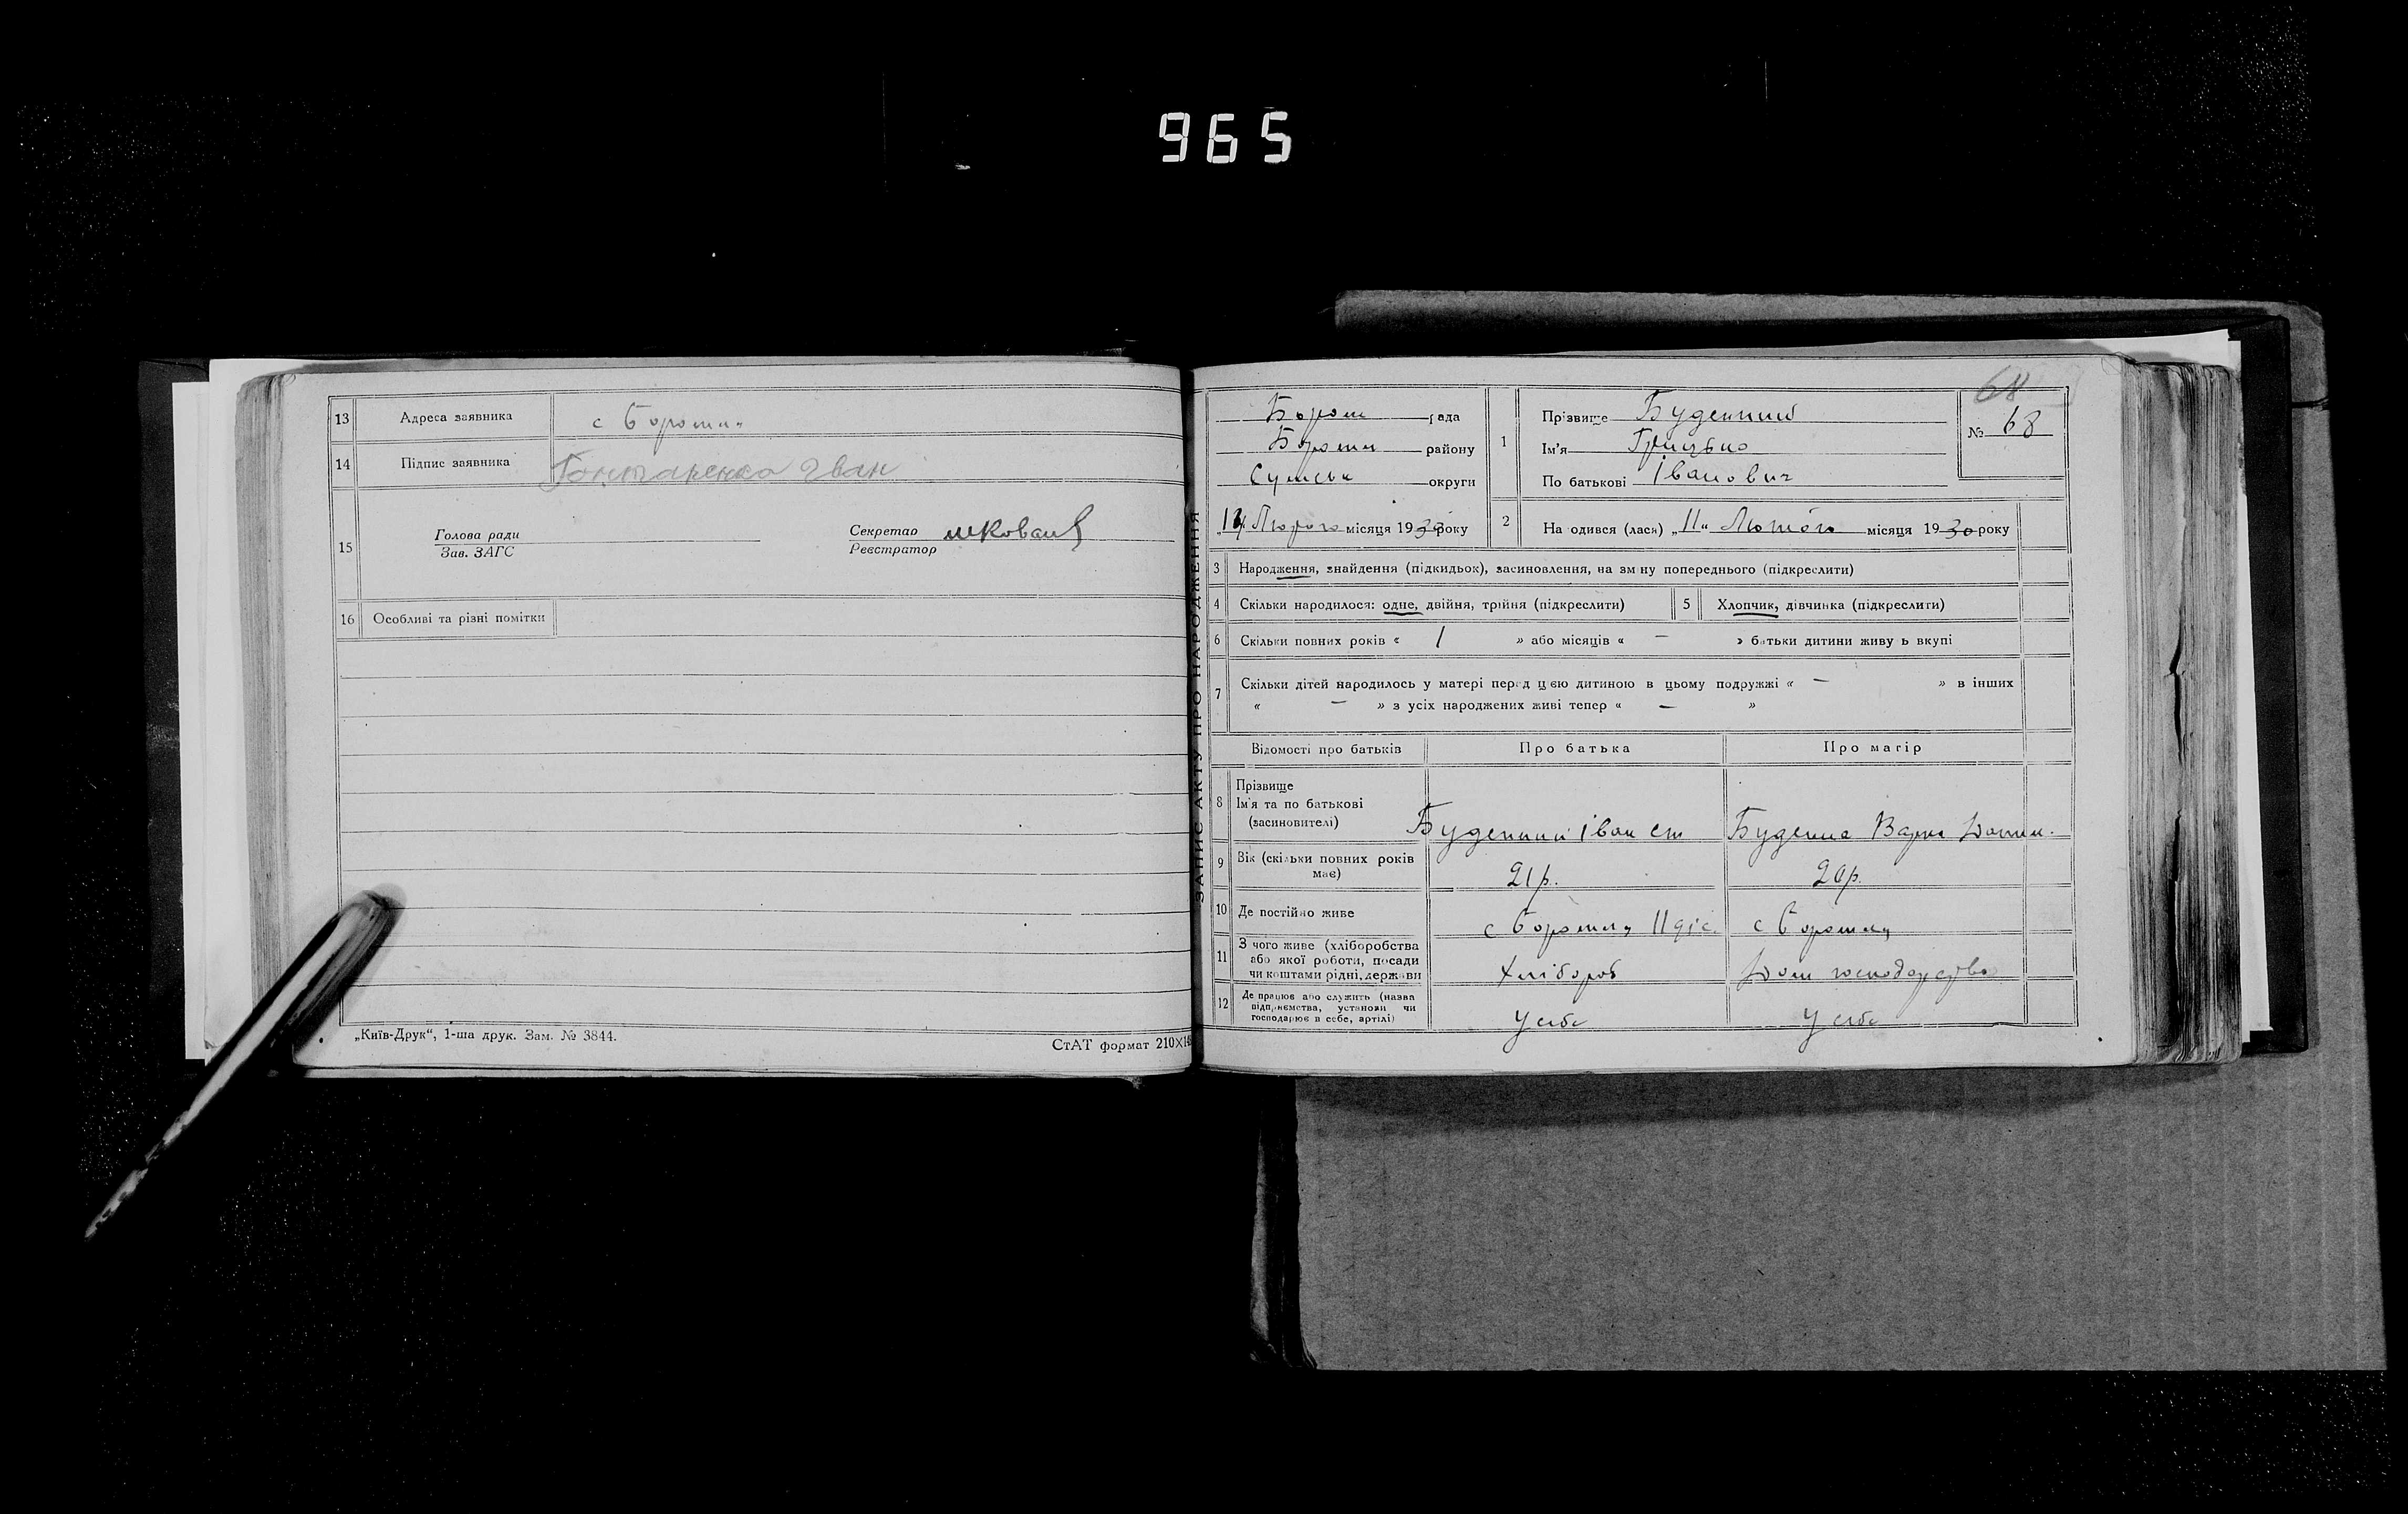 965
13 Адреса заявника с Боромля
14 Підпис заявника Гонтаренко Іван
15 Голова ради
Зав. ЗАГС
Секретар
Реєстратор
16 Особливі та різні помітки
„Київ-Друк“, 1-ша друк. Зам. № 3844.
СтАТ формат 210×14
ЗАПИС АКТУ ПРО НАРОДЖЕННЯ
68
Бором рада
Боромл району
Сумськ округи
„14 Лютого місяця 1930 року
1 Прізвище Буденний
Ім'я Грицько
По батькові Іванович
№ 68
2 На одився (лася) „11“ Лютого місяця 1930 року
3 Народження, знайдення (підкидьок), засиновлення, на зм ну попереднього (підкреслити)
4 Скільки народилося: одне, двійня, трійня (підкреслити)
5 Хлопчик, дівчинка (підкреслити)
6 Скільки повних років « 1 » або місяців « — » батьки дитини живу ь вкупі
7 Скільки дітей народилось у матері перед цією дитиною в цьому подружжі « — » в інших
« — » з усіх народжених живі тепер « — »
Відомості про батьків Про батька Про матір
8 Прізвище
Ім'я та по батькові
(засиновителі)
Буденний Іван Ст Буденна Варка
9 Вік (скільки повних років
має)
21р. 20р.
10 Де постійно живе с Боромля с Боромля
11 З чого живе (хліборобства
або якої роботи, посади
чи коштами рідні, держави
Хлібороб Дом господарство
12 Де працює або служить (назва
підприємства, установи чи
господарює в себе, артілі)
У себе У себе